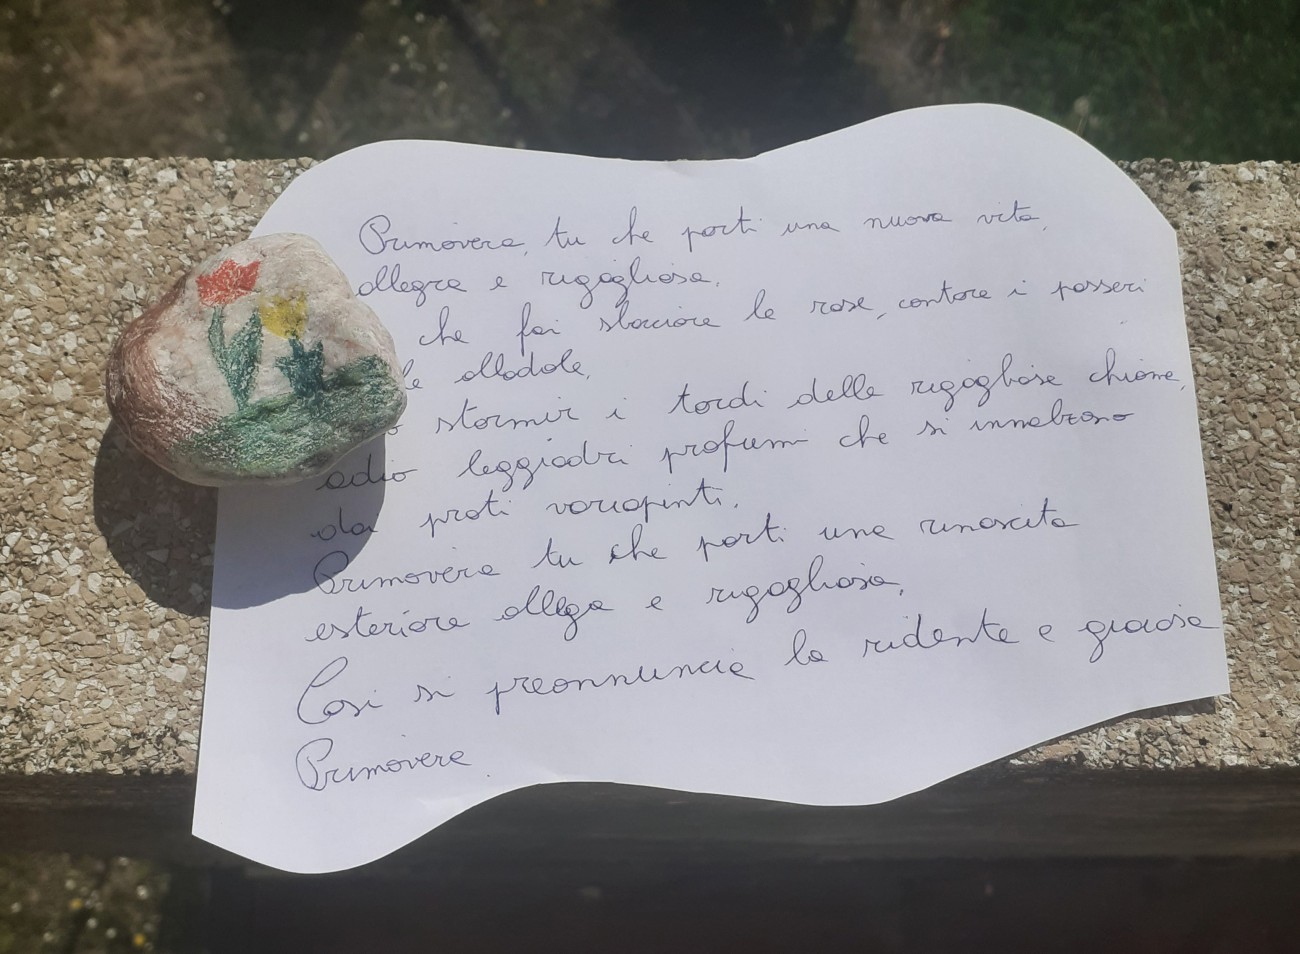 Primavera, tu che porti una nuova vita,
allegra e rigogliosa,
che fai sbocciare le rose, cantare i passeri
le allodole,
stormir i tordi delle rigogliose chiome,
odio leggiadri profumi che si innalzano
dai prati variopinti.
Primavera tu che porti una rinascita
esteriore allega e rigogliosa,
Così si preannuncia la ridente e graiosa
Primavera.